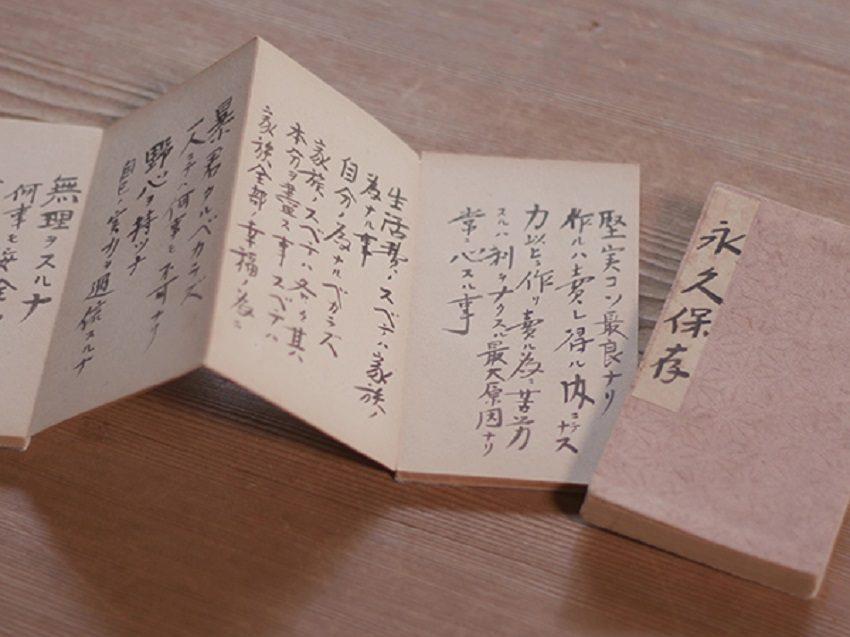 永久保存
堅実コソ最良ナリ
作ルハ賣レ得ル内ニテナス
力以上ニ作リ賣ル為ニ苦労
スルハ利ヲナクスル最大原因ナリ
常ニ心スル事
生活費ノスベテハ家族ノ
為ナル事
自分ノ為ナルベカラズ
家族ノスベテハ各々其ノ
本分ヲ盡ス事スベテハ
家族全部ノ幸福ノ為ニ
暴君タルベカラズ
一人ニテハ何事モ不可ナリ
野心ヲ持ツナ
自己ノ実力ヲ過信スルナ
無理ヲスルナ
何事モ安全